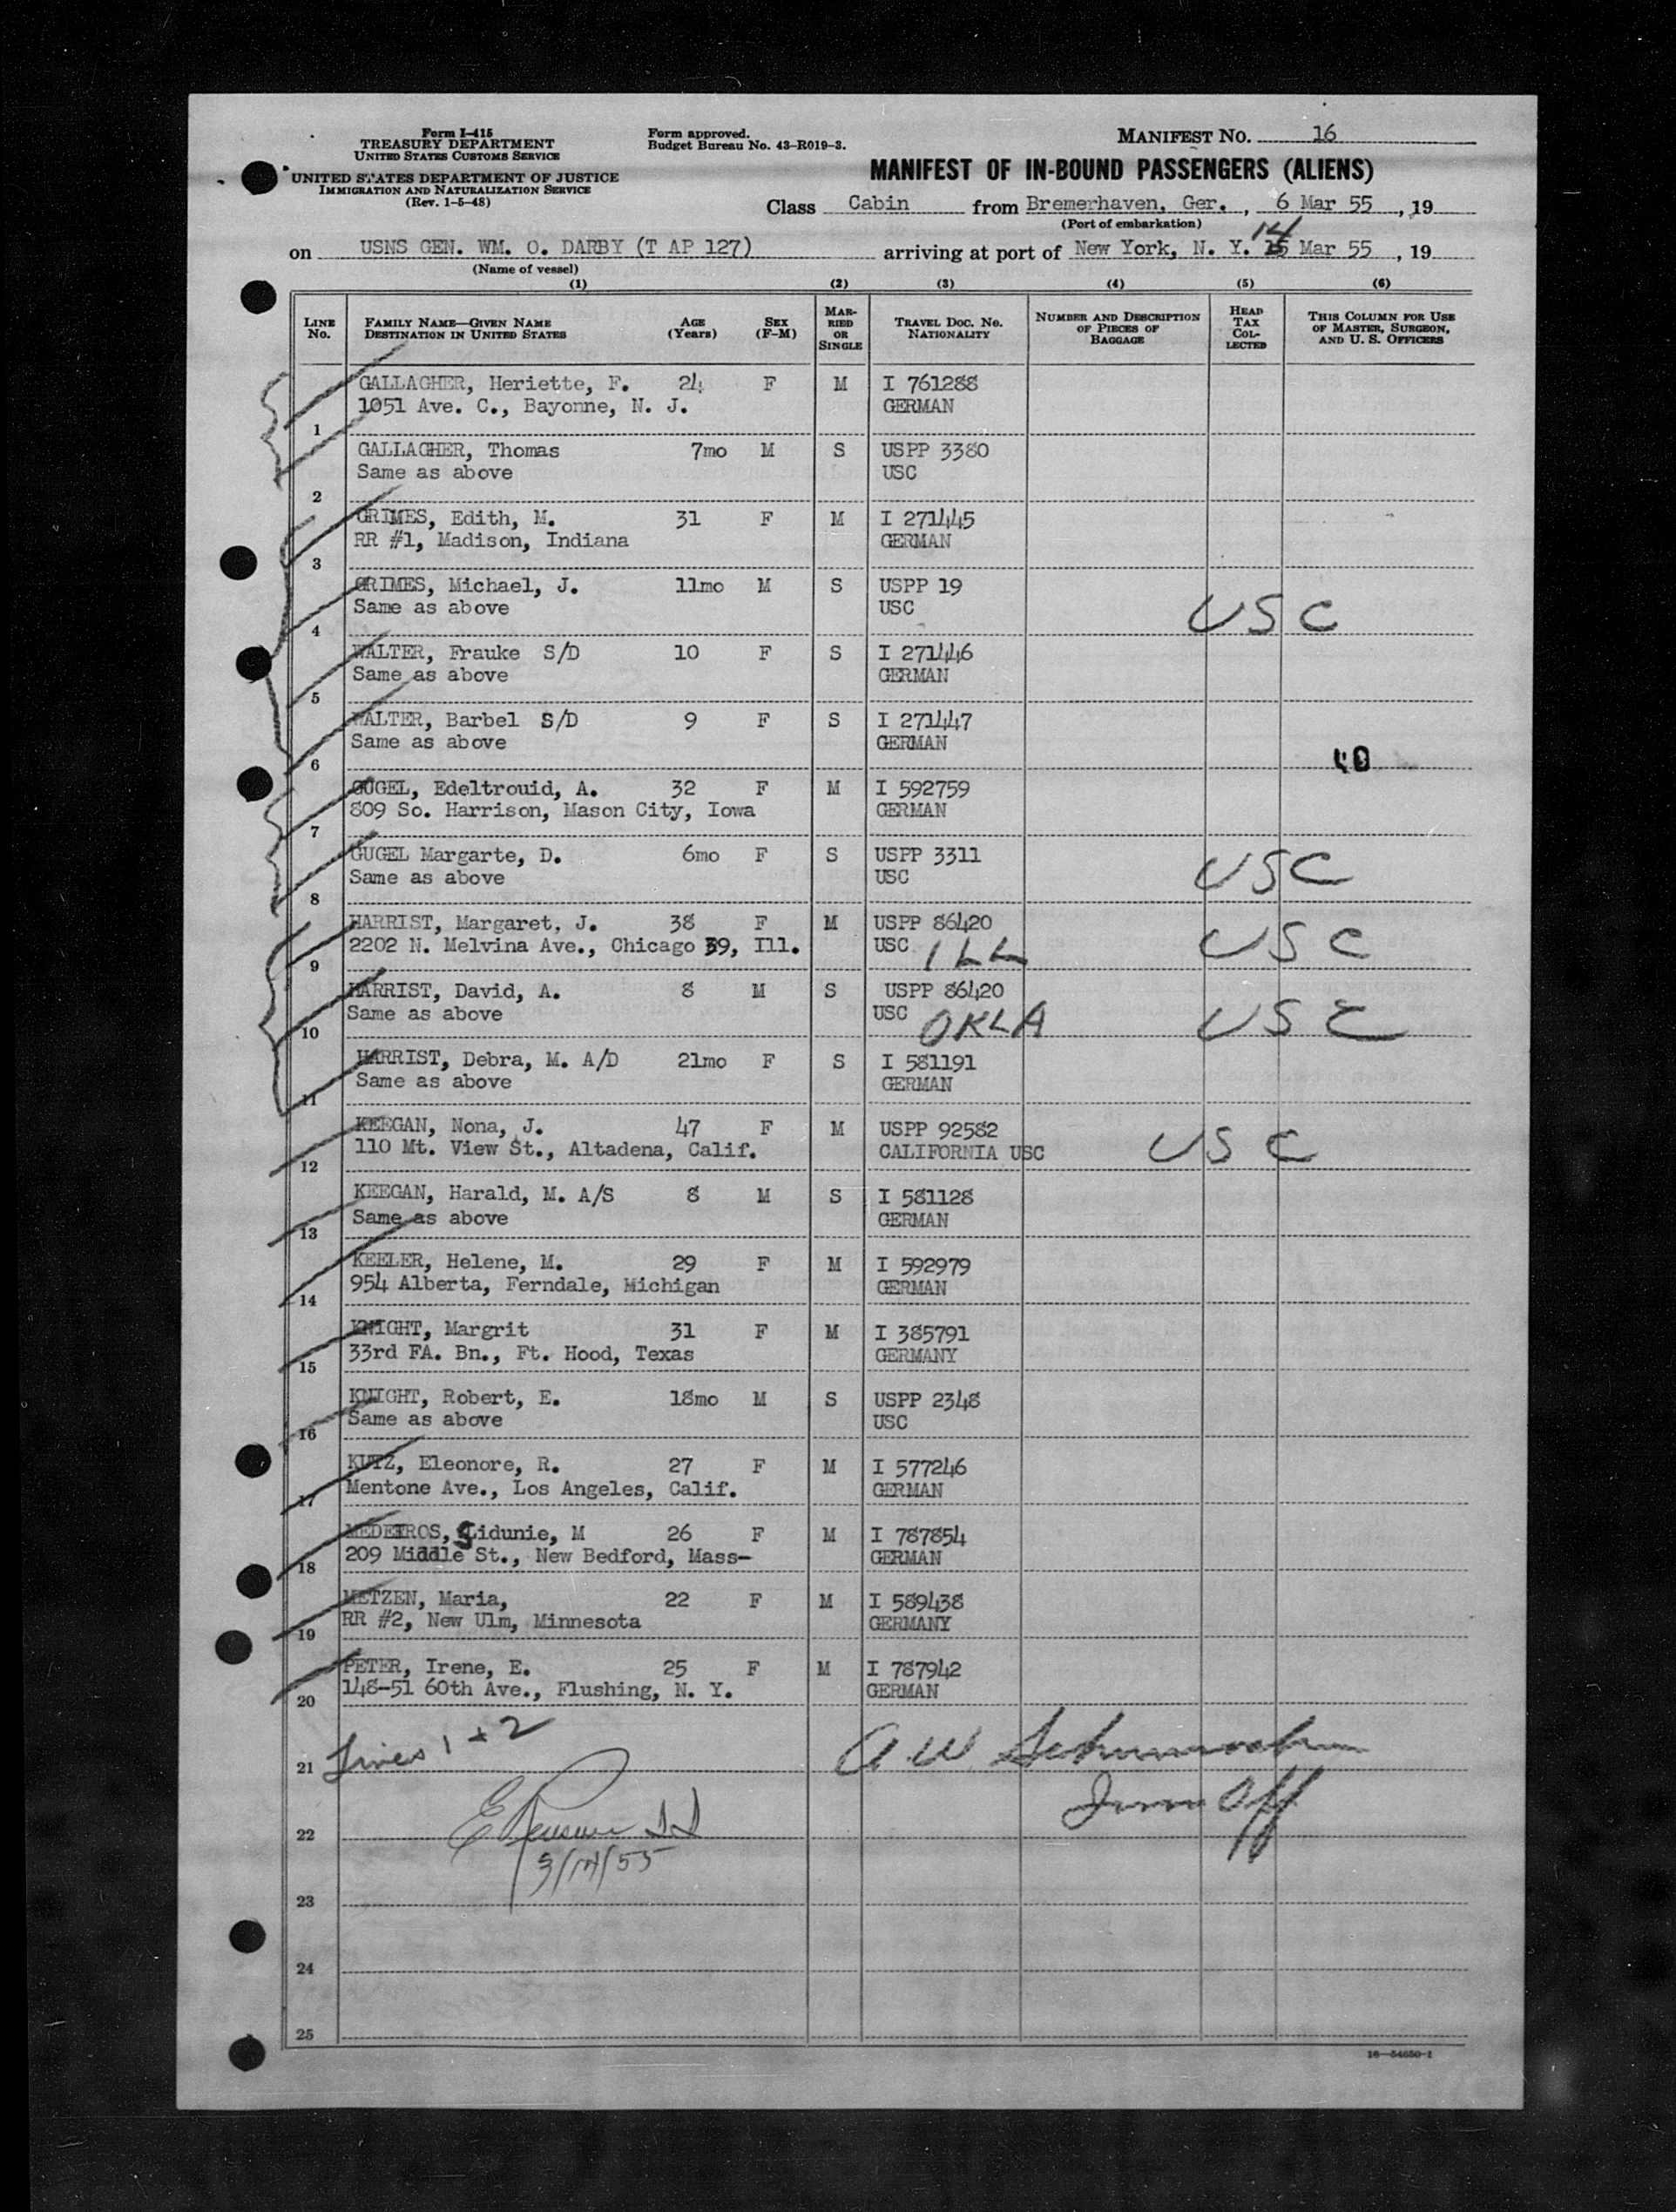 Form I-415
TREASURY DEPARTMENT
UNITED STATES CUSTOMS SERVICE
UNITED STATES DEPARTMENT OF JUSTICE
IMMIGRATION AND NATURALIZATION SERVICE
(Rev. 1-5-48)
Form approved.
Budget Bureau No. 43-R019-3.
MANIFEST NO. 16
MANIFEST OF IN-BOUND PASSENGERS (ALIENS)
Class Cabin from Bremerhaven, Ger., 6 Mar 55, 19
(Port of embarkation)
on USNS GEN. WM. O. DARBY (T AP 127) arriving at port of New York, N. Y. 14 Mar 55, 19
(Name of vessel)
(1) (2) (3) (4) (5) (6)
LINE No. FAMILY NAME—GIVEN NAME DESTINATION IN UNITED STATES AGE (Years) SEX (F-M) MARRIED OR SINGLE TRAVEL DOC. NO. NATIONALITY NUMBER AND DESCRIPTION OF PIECES OF BAGGAGE HEAD TAX COLLECTED THIS COLUMN FOR USE OF MASTER, SURGEON, AND U. S. OFFICERS
GALLAGHER, Heriette, F. 24 F M I 761288
1051 Ave. C., Bayonne, N. J. GERMAN
1
GALLAGHER, Thomas 7mo M S USPP 3380
Same as above USC
2
GRIMES, Edith, M. 31 F M I 271445
RR #1, Madison, Indiana GERMAN
3
GRIMES, Michael, J. 11mo M S USPP 19
Same as above USC USC
4
WALTER, Frauke S/D 10 F S I 271446
Same as above GERMAN
5
WALTER, Barbel S/D 9 F S I 271447
Same as above GERMAN
6
GUGEL, Edeltrouid, A. 32 F M I 592759
809 So. Harrison, Mason City, Iowa GERMAN
7
GUGEL Margarte, D. 6mo F S USPP 3311
Same as above USC USC
8
HARRIST, Margaret, J. 38 F M USPP 86420
2202 N. Melvina Ave., Chicago 39, Ill. USC ILL USC
9
HARRIST, David, A. 8 M S USPP 86420
Same as above USC OKLA USC
10
HARRIST, Debra, M. A/D 21mo F S I 581191
Same as above GERMAN
11
KEEGAN, Nona, J. 47 F M USPP 92582
110 Mt. View St., Altadena, Calif. CALIFORNIA USC USC
12
KEEGAN, Harald, M. A/S 8 M S I 581128
Same as above GERMAN
13
KEELER, Helene, M. 29 F M I 592979
954 Alberta, Ferndale, Michigan GERMAN
14
KNIGHT, Margrit 31 F M I 385791
33rd FA. Bn., Ft. Hood, Texas GERMANY
15
KNIGHT, Robert, E. 18mo M S USPP 2348
Same as above USC
16
KUTZ, Eleonore, R. 27 F M I 577246
Mentone Ave., Los Angeles, Calif. GERMAN
17
MEDEIROS, Sidunie, M 26 F M I 787854
209 Middle St., New Bedford, Mass- GERMAN
18
METZEN, Maria, 22 F M I 589438
RR #2, New Ulm, Minnesota GERMANY
19
PETER, Irene, E. 25 F M I 787942
148-51 60th Ave., Flushing, N. Y. GERMAN
20
Lines 1 + 2 A W
21
Imm Off
22
3/14/55
23
24
25
16—54650-1